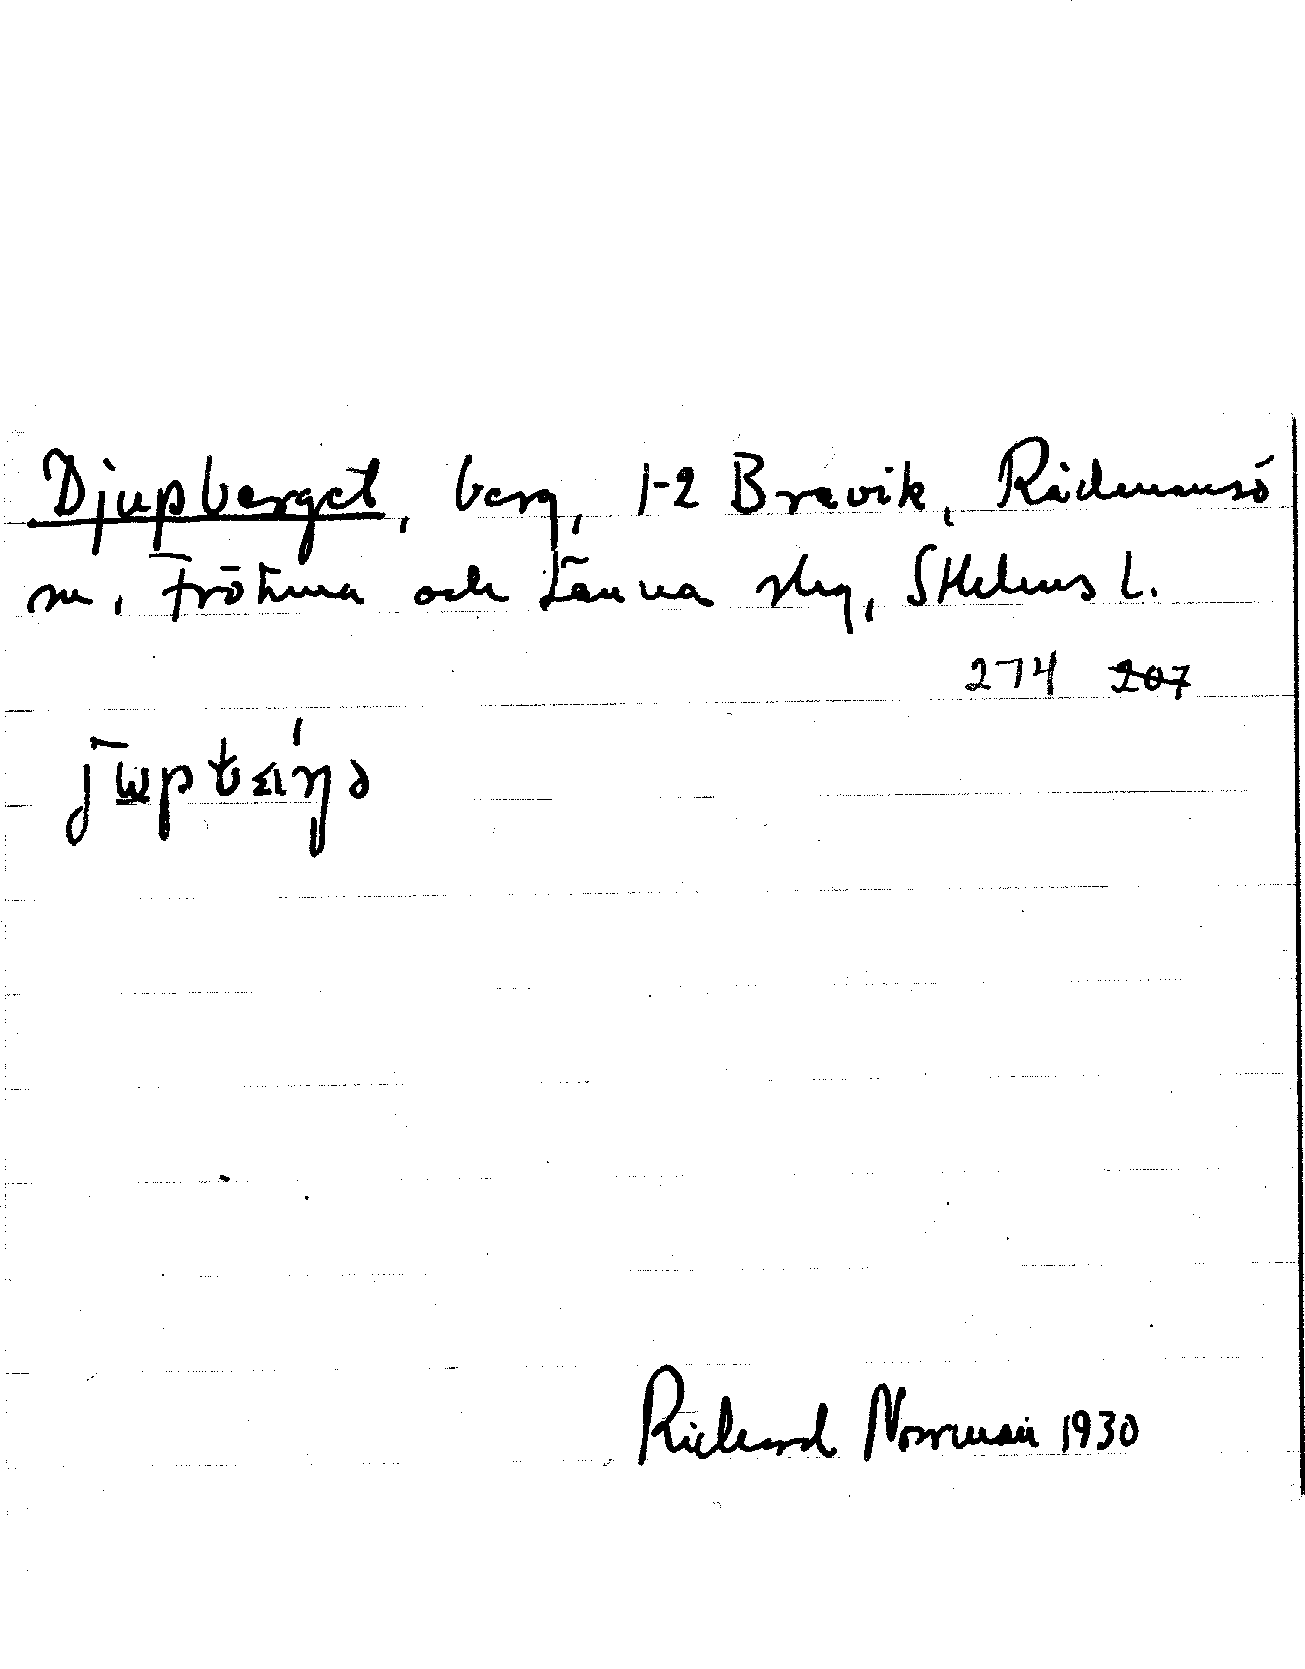 Djupberget, berg, 1-2 Brevik, Rådmansö
sn, Frötuna och Länna slg, Sthlms l.
274 207
Richard Norrman 1930